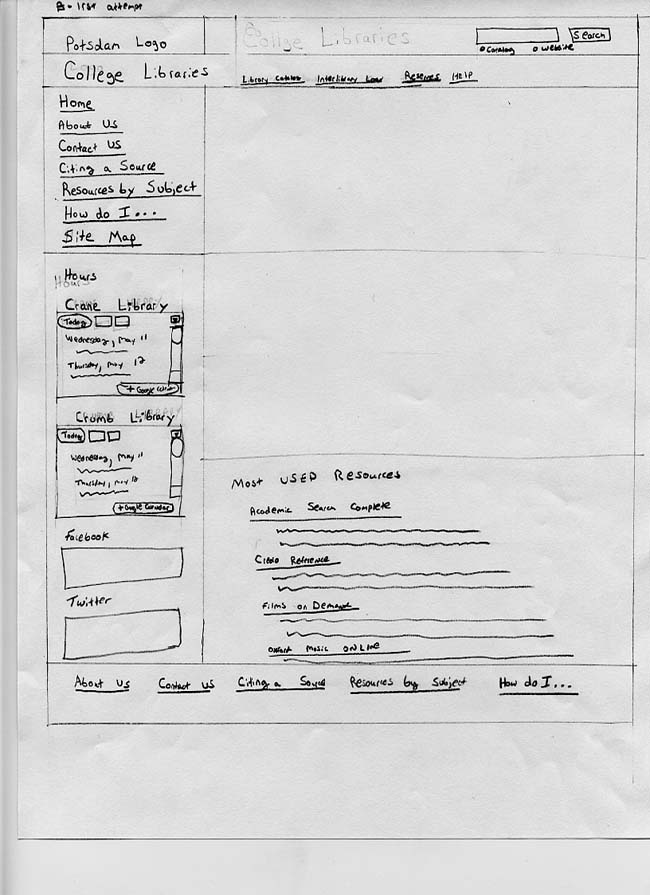 B - 1st attempt
Potsdam Logo
Collge Libraries
Search
Catalog Website
College Libraries
Library Catalog Interlibrary Loan Reserves HELP
Home
About Us
Contact US
Citing a Source
Resources by Subject
How do I...
Site Map
Hours
Hours
Crane Library
Today
Wednesday, May 11
Thursday, May 12
+ Google Calendar
Crumb Library
Today
Wednesday, May 11
Thursday, May 12
+ Google Calendar
Facebook
Twitter
Most USED Resources
Academic Search Complete
Credo Reference
Films on Demand
Oxford Music ONLINE
About Us Contact US Citing a Source Resources by Subject How do I...